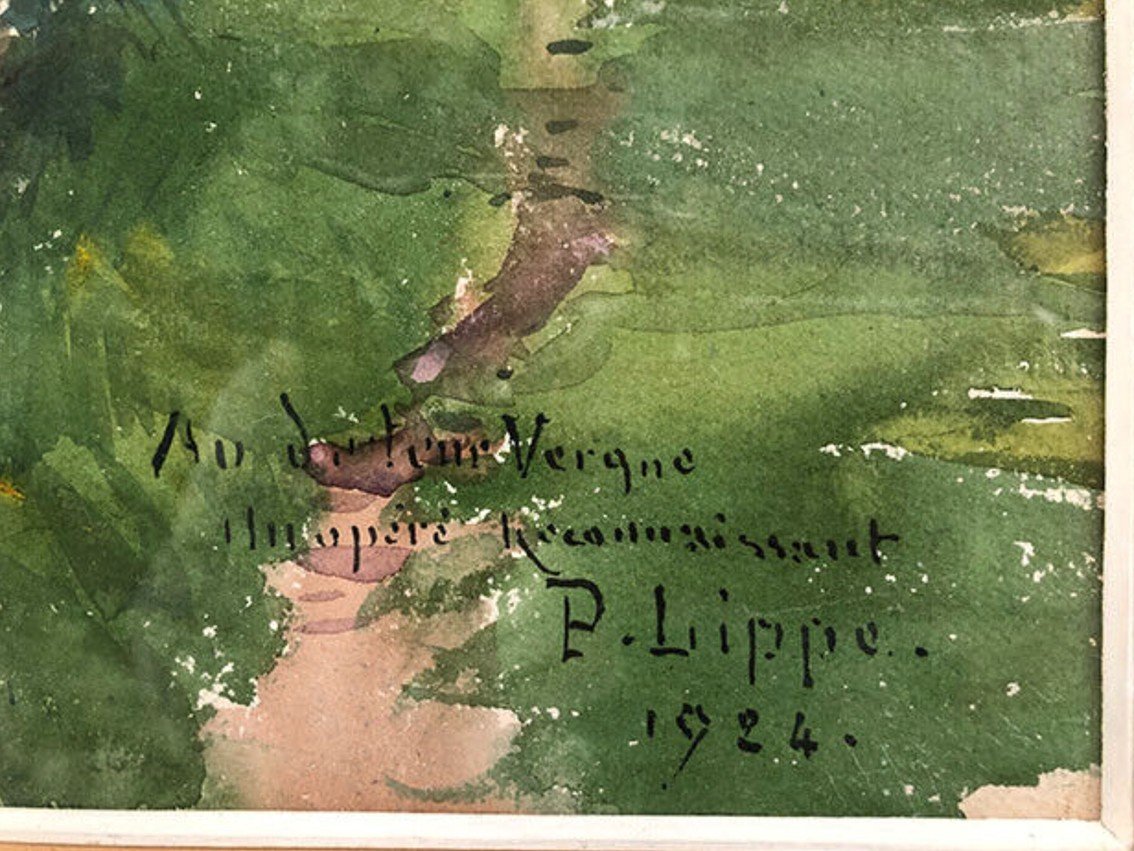 Au docteur Vergne
Un opéré Reconnaissant
P. Lippe.
1924.